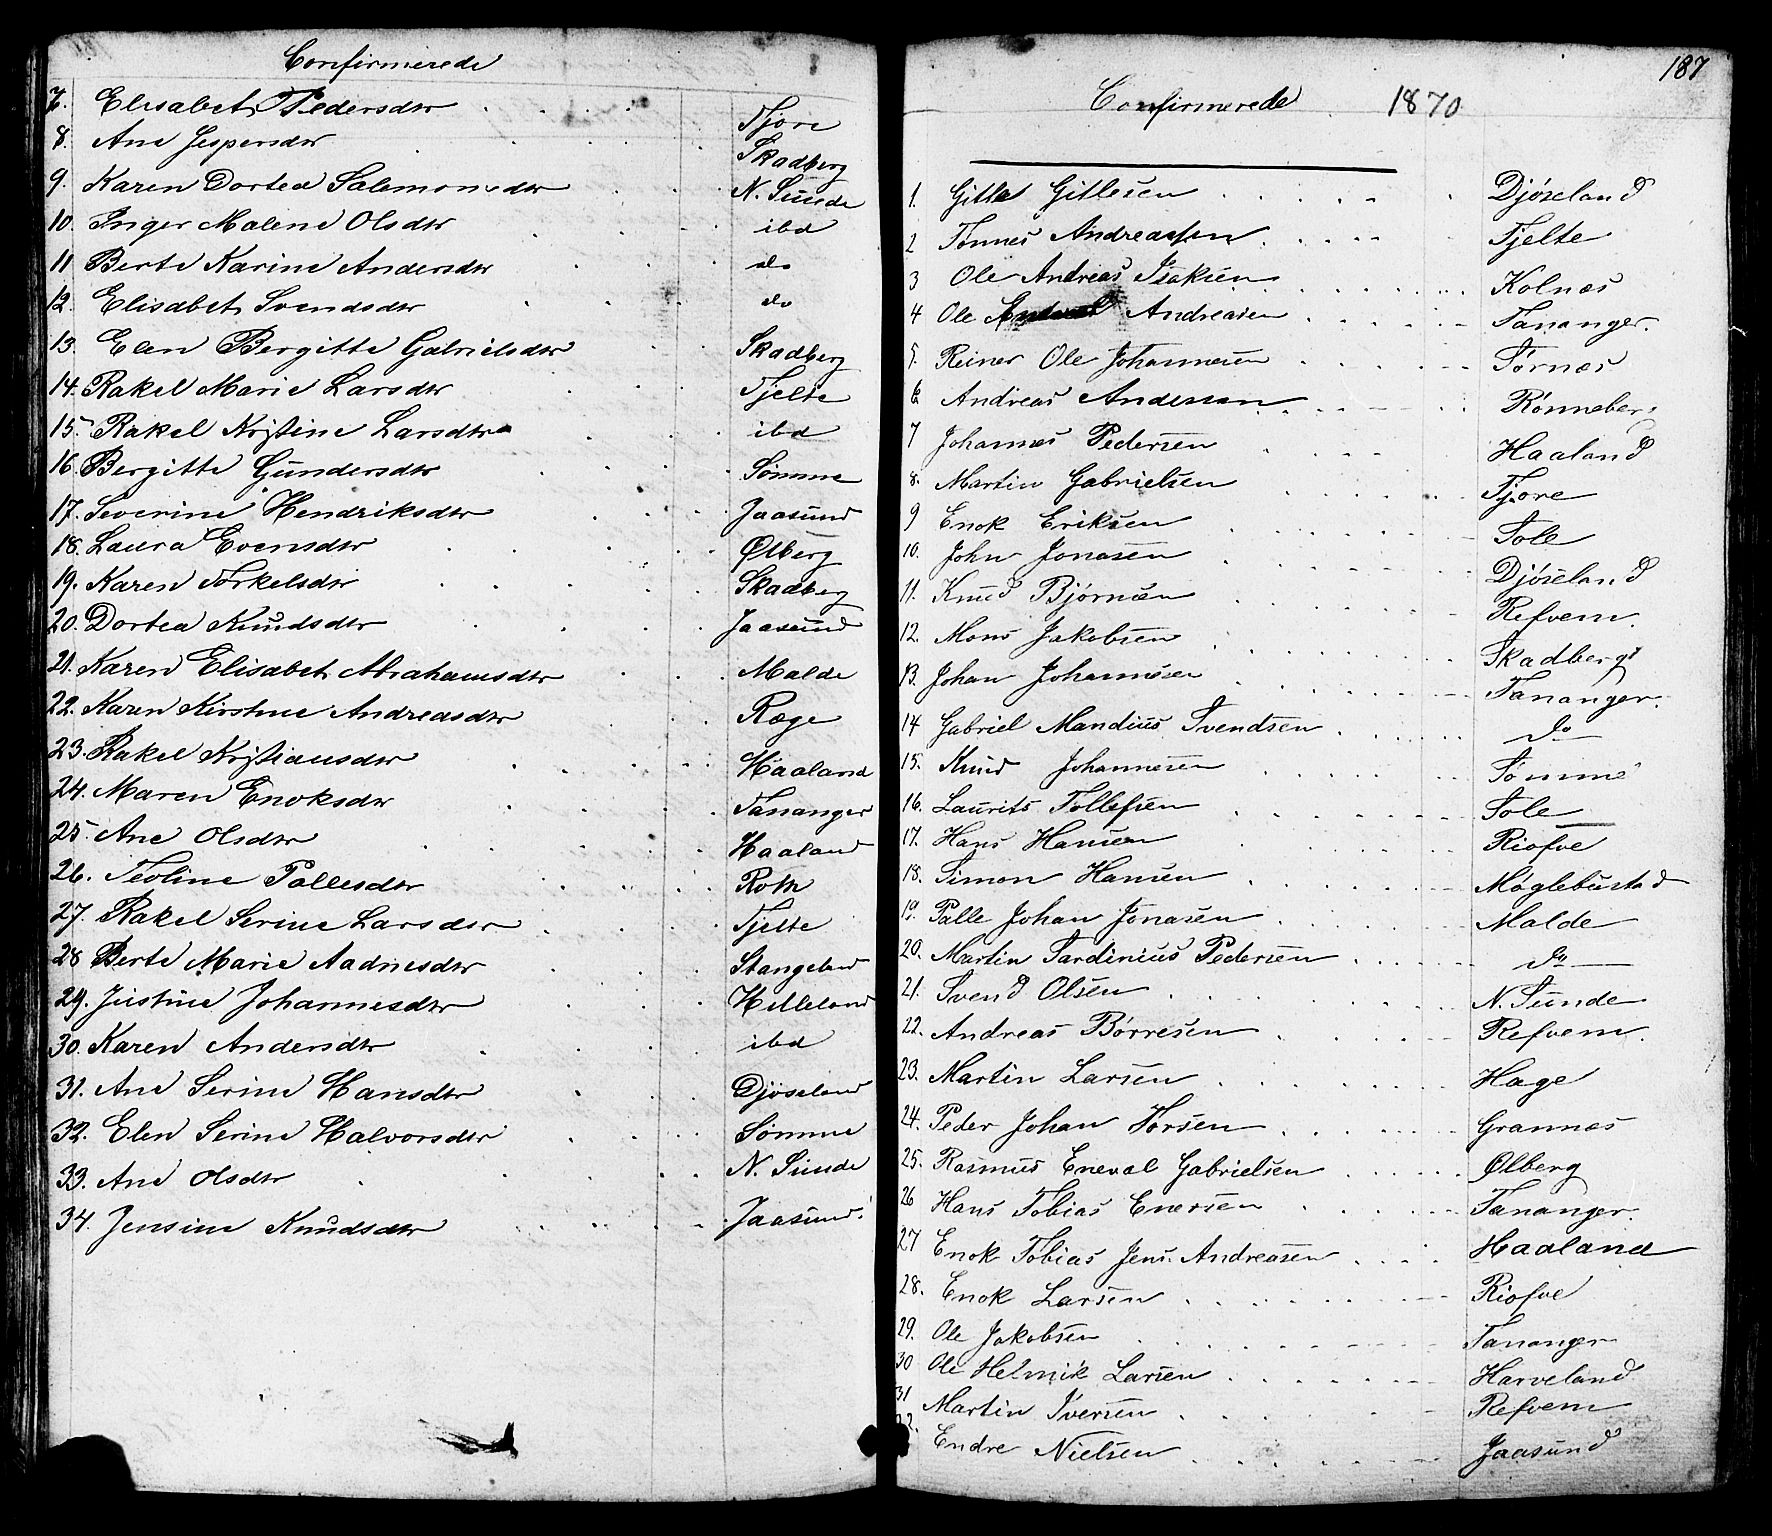 Confirmerede
7. Elisabet Pedersdtr Tjore
8. Ane Jespersdtr Skadberg
9. Karen Dortea Salomonsdtr N. Sunde
10. Inger Malene Olsdtr ibd
11 Berte Karine Andersdtr do
12. Elisabet Svendsdtr do
13. Elen Bergitte Gabrielsdtr Skadberg
14. Rakel Marie Larsdtr Tjelte
15. Rakel Kristine Larsdtr ibd
16. Bergitte Gundersdtr Sømme
17. Severine Hendriksdtr Jaasund
18. Laura Evensdtr Ølberg
19. Karen Torkelsdtr Skadberg
20. Dortea Knudsdtr Jaasund
21. Karen Elisabet Abrahamsdtr Malde
22. Karen Kirstine Andreasdtr Ræge
23. Rakel Kristiansdtr Haaland
24. Maren Enoksdtr Tananger
25. Ane Olsdtr Haaland
26. Teoline Pallesdtr Roth
27. Rakel Serine Larsdtr Tjelte
28 Berte Marie Aadnesdtr Stangeland
29. Justine Johannesdtr Hilleland
30. Karen Andersdtr ibd
31. Ane Serine Hansdtr Djøseland
32. Elen Serine Halvorsdtr Sømme
33. Ane Olsdtr N. Sunde
34. Jensine Knudsdtr Jaasund
187
Confirmerede 1870
1. Gitle Gitlesen Djøseland
2 Tønnes Andreassen Tjelte
3 Ole Andreas Isaksen Kolnæs
4 Ole Andreasen Tananger.
5. Reiner Ole Johannesen Sørnæs
6 Andreas Andersen Rønneberg
7 Johannes Pedersen Haaland
8. Martin Gabrielsen Tjore
9 Enok Eriksen Sole
10. John Jonasen Djøseland
11. Knud Bjørnsen Refvem.
12. Mons Jakobsen Skadberg
13. Johan Johannesen Tananger.
14 Gabriel Mandius Svendsen do
15. Knud Johannesen Sømme
16. Laurits Tollefsen Sole
17. Hans Hansen Riofve
18. Simon Hansen Møglebustad
19. Palle Johan Jonasen Malde
20. Martin Sardinius Pedersen do
21. Svend Olsen N. Sunde
22. Andreas Børresen Refvem.
23. Martin Larsen Hage
24. Peder Johan Torsen Grannæs
25. Rasmus Eneval Gabrielsen Ølberg
26 Hans Tobias Enersen Tananger.
27 Enok Tobias Jens. Andreasen Haaland
28. Enok Larsen Riofve
29. Ole Jakobsen Tananger
30 Ole Helmik Larsen Harveland
31 Martin Iversen Refvem
32. Endre Nielsen Jaasund